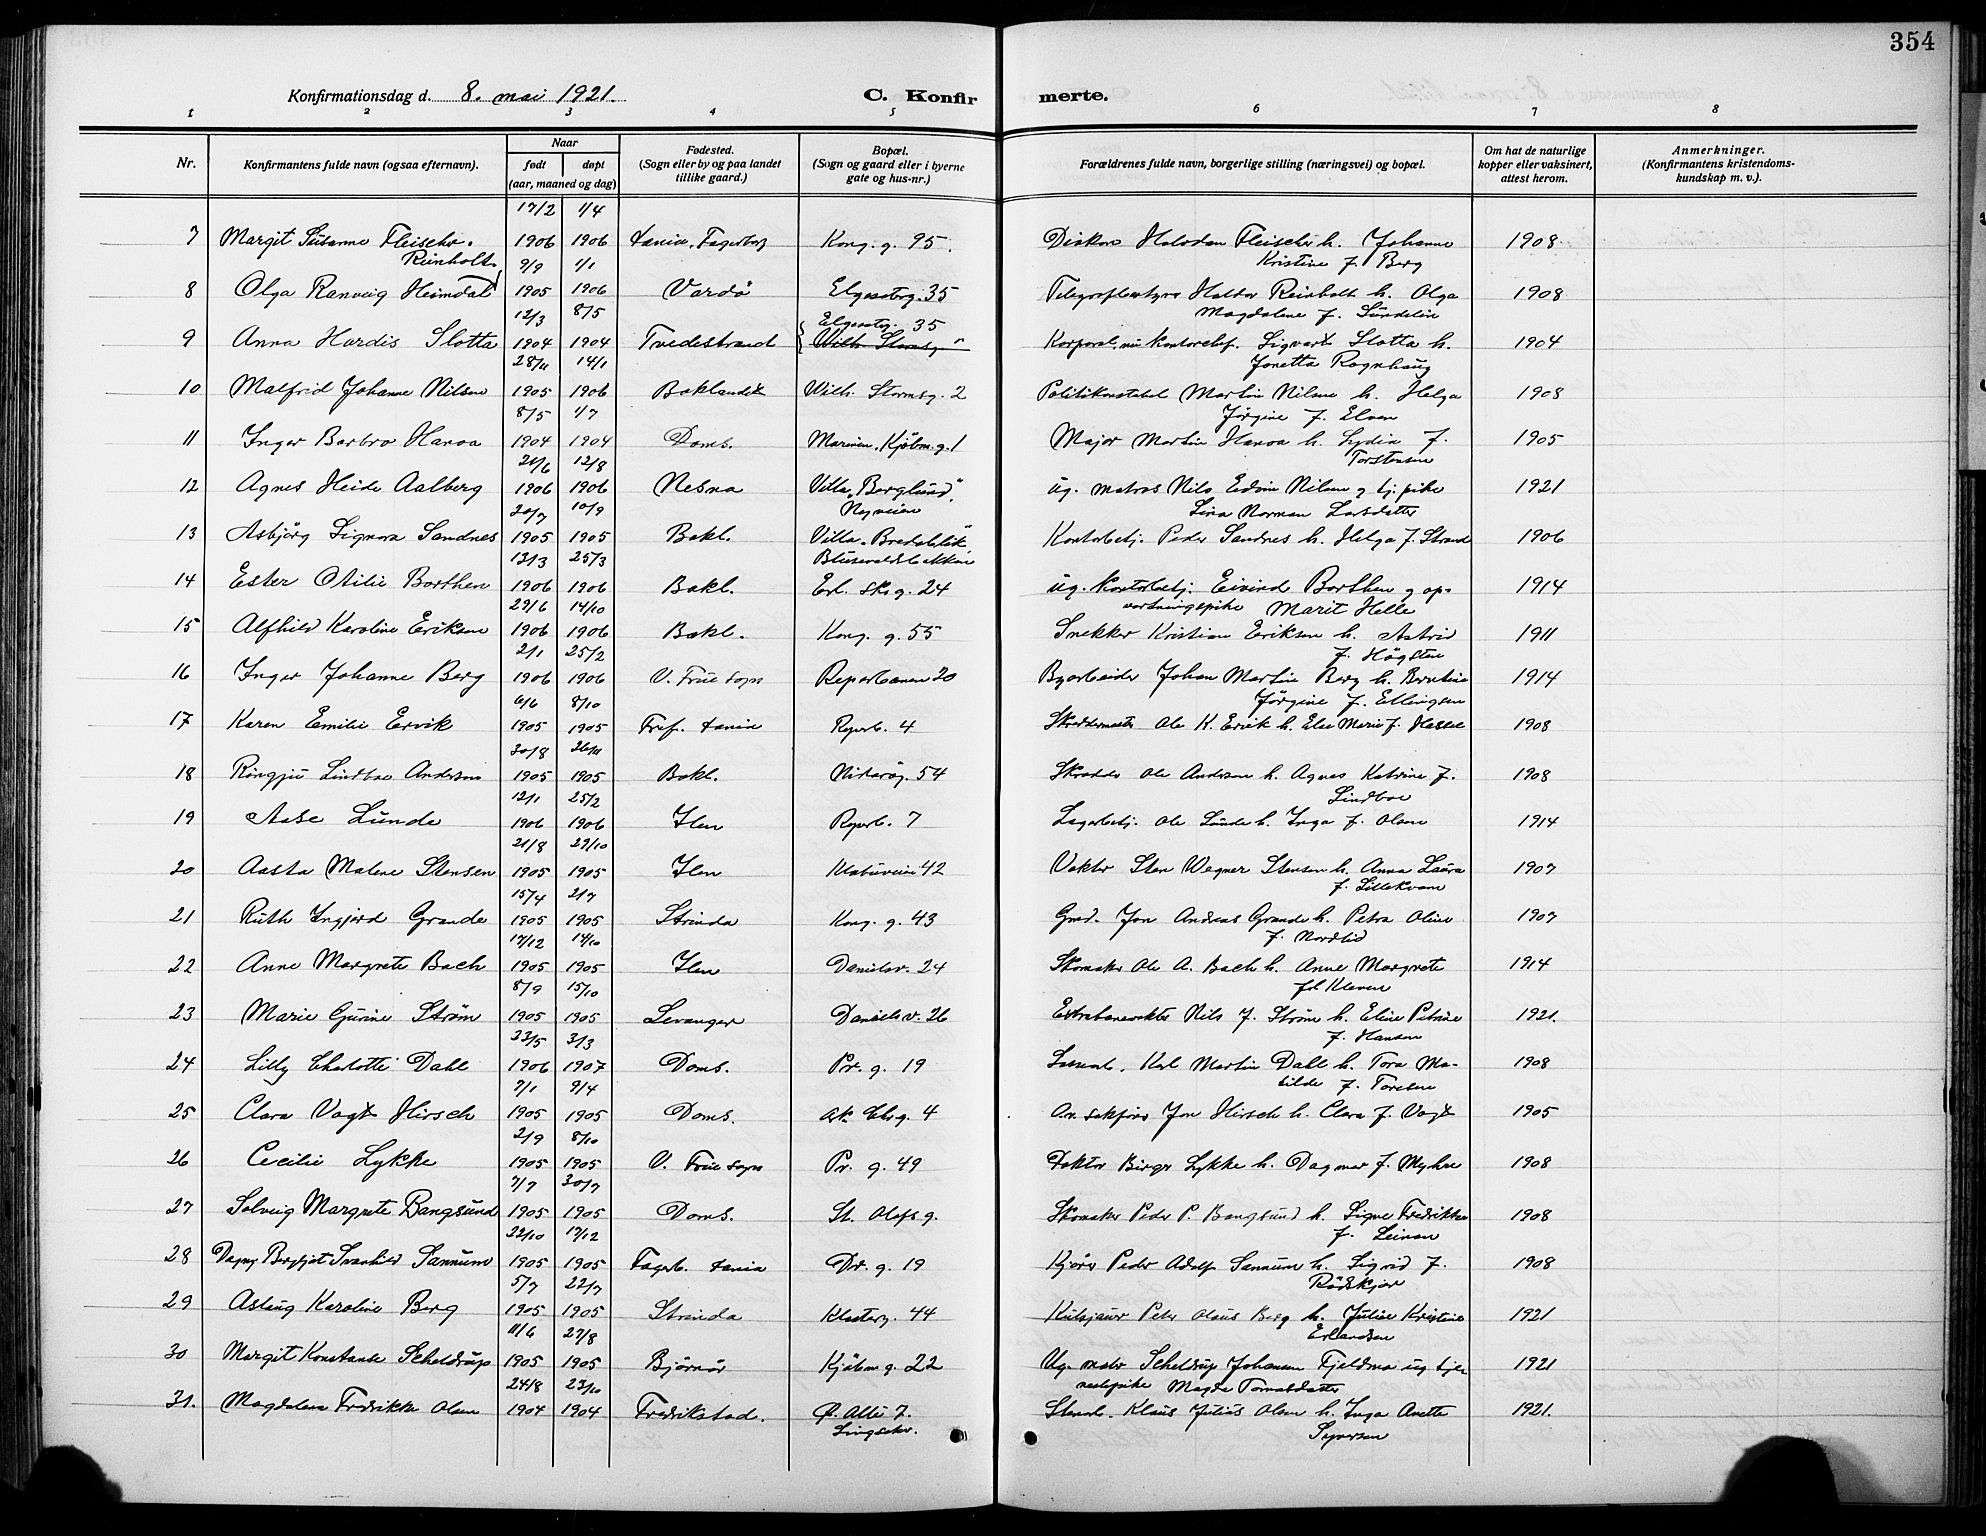 354
Konfirmationsdag d. 8. mai 1921. C. Konfirmerte.
1 2 3 4 5 6 7 8
Nr. Konfirmantens fulde navn (ogsaa efternavn). Naar født døpt (aar, maaned og dag) Fødested. (Sogn eller by og paa landet tillike gaard.) Bopæl. (Sogn og gaard eller i byerne gate og hus-nr.) Forældrenes fulde navn, borgerlige stilling (næringsvei) og bopæl. Om hat de naturlige kopper eller vaksinert, attest herom. Anmerkninger. (Konfirmantens kristendomskundskap m. v.).
17/2 1/4
7 Margit Susanne Fleischer. 1906 1906 Fagerborg Kong. g. 95. Halvdan Fleischer h. Johanne 1908.
Reinholt 9/9 1/1 Kristine f. Berg
8 Olga Ranveig Heimdal 1905 1906 Vardö 35 Haldor Reinholt h. Olga 1908
12/3 8/5 35 Magdalene f. Sundelin
9 Anna Hardis Slotta 1904 1904 Tvedestrand Wilh. Stormsg. " Korporal, nu Sigvart Slotta h. 1904
28/11 14/1 Jonetta Rognhaug
10 Malfrid Johanne Nilsen 1905 1906 Baklandet Wilh. Stormsg. 2 Politikonstabel Martin Nilsen h. Helga 1908
8/5 1/7 Jørgine f. Elven
11 Inger Barbro Hanoa 1904 1904 Doms. Marinen, Kjöbm. g. 1 Major Martin Hanoa h. Lydia f. 1905
21/6 12/8 Torstensen
12 Agnes Heide Aalberg 1906 1906 Nesna Villa „Berglund", ug. matros Nils Edvin Nilsen g tj. pike 1921
20/7 10/9 Nyveien Lina Norman Larsdatter
13 Asbjörg Signora Sandnes 1905 1905 Bakl. Villa „Bredablik" Kontorbetj. Peder Sandnes h. Helga f. Strand 1906
13/3 25/3
14 Ester Otilie Borthen 1906 1906 Bakl. Erl. Sks g. 24 ug. kontorbetj. Eivind Borthen g op- 1914
29/6 14/10 vartningspike Marit Helle
15 Alfhild Karoline Eriksen 1906 1906 Bakl. Kong. g. 55 Snekker Kristian Eriksen h. Astrid 1911
2/1 25/2 f. Högsten
16 Inger Johanne Berg 1906 1906 V. Frue sogn Reperbanen 20 Byarbeider Johan Martin Berg h. Berntine 1914
6/6 8/10 Jörgine f. Ellingsen
17 Karen Emilie Ervik 1905 1905 Reperb. 4 Skreddermester Ole K. Ervik h. Else Marie f. 1908
20/8 26/11
18 Lindboe Andersen 1905 1905 Bakl. Nidarög. 54 Skredder Ole Andersen h. Agnes Katrine f. 1908
12/1 25/2 Lindboe
19 Aase Lunde 1906 1906 Ilen Reperb. 7 Lagerbetj. Ole Lunde h. Inga f. Olsen 1914
21/8 29/10
20 Aasta Malene Stensen 1905 1905 Ilen Klæbuveien 42 Vekter Sten Wegner Stensen h. Anna Laura 1907
15/4 2/7 f. Lillekvam
21 Ruth Ingjerd Grande 1905 1905 Strinda Kong. g. 43 Jon Andreas Grande h. Petra Oline 1907
17/12 14/10 f. Nordlid
22 Anne Margrete Bach 1905 1905 Ilen Danielsv. 24 Skomaker Ole A. Bach h. Anne Margrete 1914
8/9 15/10 Kleven
23 Marie Gurine Strøm 1905 1905 Levanger Danielsv. 26 Extrabanevokter Nils J. Strøm h. Eline Petrine 1921.
23/5 3/3 f. Hansen
24 Lilly Charlotte Dahl 1906 1907 Doms. Pr. g. 19 Karl Martin Dahl h. Tora Ma- 1908
7/1 9/4 tilde f. Torelsen
25 Clara Vogt Hirsch 1905 1905 Doms. 4 O.r. sakfører Jon Hirsch h. Clara f. Vogt 1905
2/9 8/10
26 Cecilie Lykke 1905 1905 V. Frue sogn Pr. g. 49 Doktor Birger Lykke h. Dagmar f. Myhre 1908
7/7 30/7
27 Solveig Margrete Bangsund 1905 1905 Doms. St. Olafs g. Skomaker Peder P. Bangsund h. Signe Fredrikke 1908
22/10 17/12 f. Leinan
28 Dagny Bergljot Svanhild Sannum 1905 1905 Fagerb. Dr. g. 19 Kjörer Peder Adolf Sannum h. Sigrid f. 1908
5/7 22/7 Rödskjer
29 Aslaug Karoline Berg 1905 1905 Strinda Klosterg. 44 Peter Olaus Berg h. Julie Kristine 1921
11/6 27/8 Erlandsen
30 Margit Konstanse Scheldrup 1905 1905 Björnör Kjöbm g. 22 Ug. Scheldrup Johansen Fjeldma ug tje- 1921
24/8 23/10 nestepike Magda Tomasdatter
31. Magdalena Fredrikke Olsen 1904 1904 Fredrikstad. Klaus Julius Olsen h. Inga Anette 1921.
Syversen